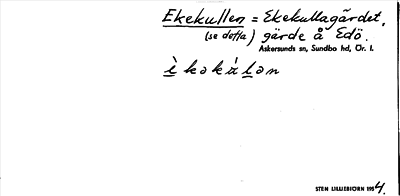 Ekekullen = Ekekullagärdet,
(se detta) gärde å Edö.
Askersunds sn, Sundbo hd, Ör. l.
STEN LILLIEBJÖRN 1954.